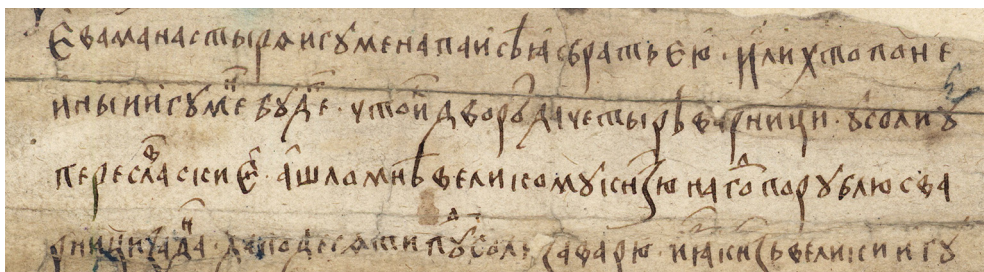 Єва манастырѧ игуменa паисѣꙗ сбратьею · или хто по не
иныи игуме͏ⷩ буде͏ⷮ · у тои дворъ да четыри варници · у соли у
переслаⷡскиⷯ · а шло мнѣ великому кнѧзю на гоⷣ по рублю с ва
рници у а дана · да по десѧти пуⷣ соли за варю · и ꙗ кнѧзь великии и гу